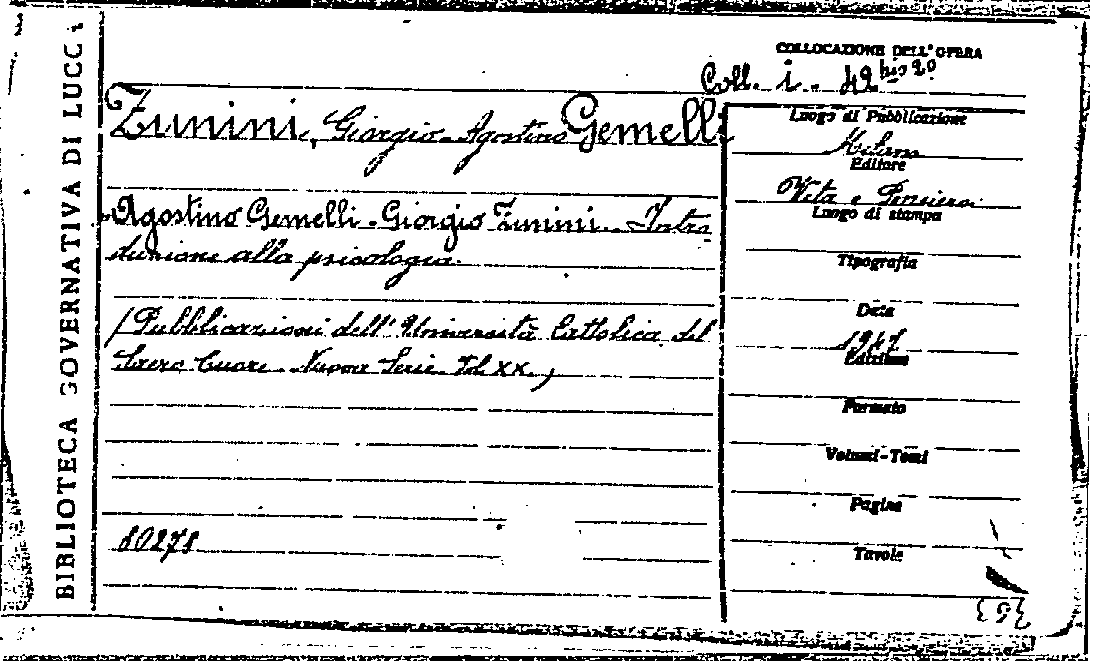 BIBLIOTECA GOVERNATIVA DI LUCCA
COLLOCAZIONE DELL'OPERA
Coll. i. 42 bis 20
Zunini, Giorgio - Agostino Gemelli
Agostino Gemelli - Giorgio Zunini. - Intro-
duzione alla psicologia.
(Pubblicazioni dell'Università Cattolica del
Sacro Cuore. Nuova Serie. Vol XX.)
80278
Luogo di Pubblicazione
Milano
Editore
Vita e Pensiero.
Luogo di stampa
Tipografia
Data
1947
Edizione
Formato
Volumi-Tomi
Pagine
Tavole